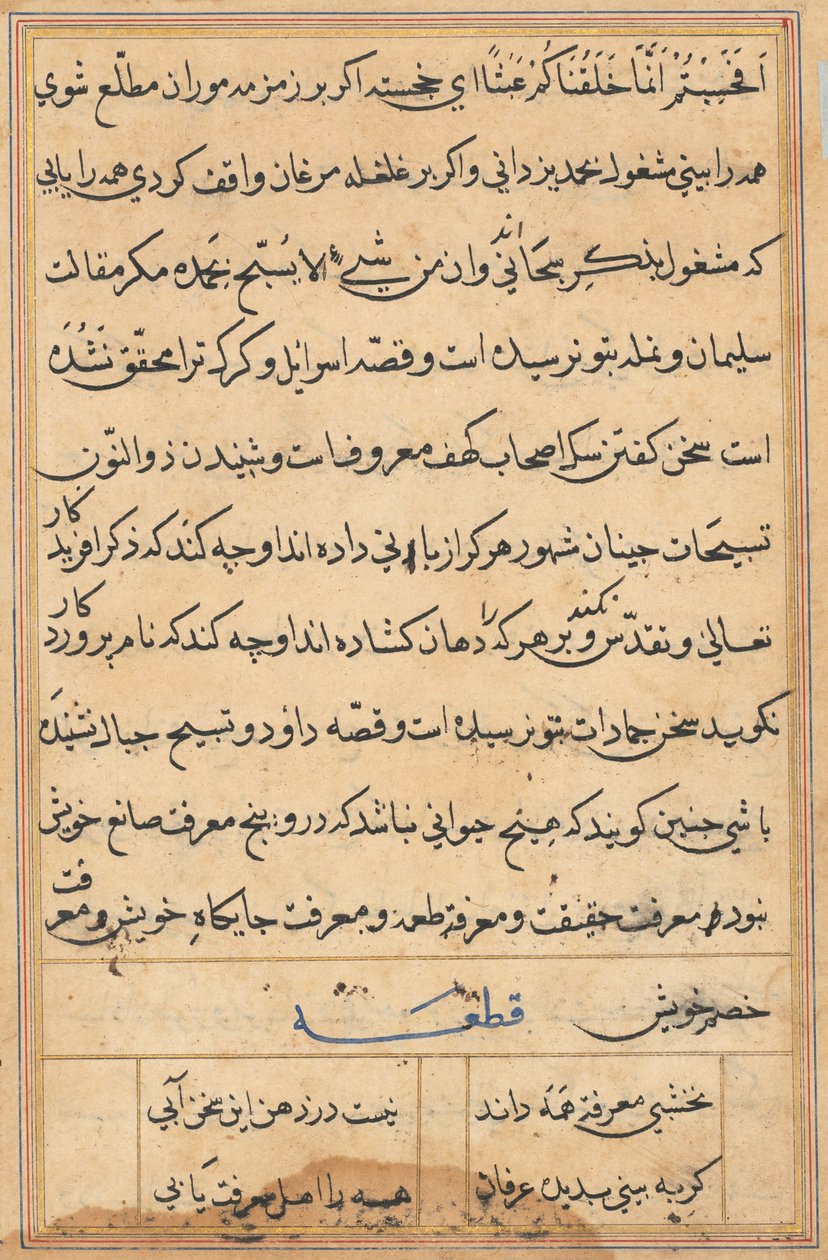 اَفَحَسِبْتُمْ اَنَّمَا خَلَقْنَاكُمْ عَبَثًا اي خجسته اكر بر زمزمه موران مطلّع شوي
همه را بيني مشغول بحمد يزداني و اكر بر غلغله مرغان واقف كردي همه را يابي
كه مشغول بذكرِ سبحاني اند وان من شيءٍ الا يُسبّح بحمده مكر مقالت
سليمان و نمله بتو نرسيده است و قصّه اسرائيل و كرك ترا محقّق نَشُدَه
است سخن كفتن سك اصحاب كهف معروف است و شنيدن ذوالنّون
تسبيحَات جينان مشهور هركرا زباني داده اند او چه كند كه ذكر افريدكار
تعالىٰ و تقدّس نكند و بر هر كه را دهان كشاده اند او چه كند كه نام پروردكار
نكويد سخن جمادات بتو نرسيده است و قصّه داؤد و تسبيح جبال نشنيده
باشي جنين كويند كه هيچ حيواني نباشد كه درو پنج معرفت صانع خويش
نبود معرفت حقيقت و معرفة طعمه و معرفت جايكاهِ خويش و معرفت
خصم خويش قطعه
نخشبي معرفة همَه داند نيست در ذهن اين سخن آبي
كر به بيني بديده عرفان همه را اهل معرفت يَابي